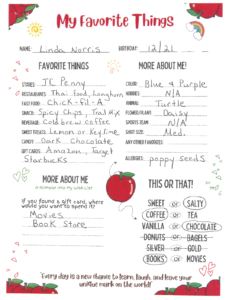 My Favorite Things
NAME: Linda Norris BIRTHDAY: 12/21
FAVORITE THINGS
STORES: JC Penny
RESTAURANTS: Thai Food, Longhorn
FAST FOOD: Chick-fil-A
SNACK: Spicy Chips, Trail Mix
BEVERAGE: Cold brew coffee
SWEET TREATS: Lemon or Key Lime
CANDY: Dark Chocolate
GIFT CARDS: Amazon, Target
Starbucks
MORE ABOUT ME!
COLOR: Blue & Purple
HOBBIES: N/A
ANIMAL: Turtle
FLOWER/PLANT: Daisy
SPORTS TEAM: N/A
SHIRT SIZE: Med.
ANY OTHER FAVORITES:
ALLERGIES: poppy seeds
MORE ABOUT ME
If you found a gift card, where
would you want to spend it?
Movies
Book Store
THIS OR THAT!
SWEET or SALTY
COFFEE or TEA
VANILLA or CHOCOLATE
DONUTS or BAGELS
SILVER or GOLD
BOOKS or MOVIES
"Every day is a new chance to learn, laugh, and leave your
unique mark on the world!"